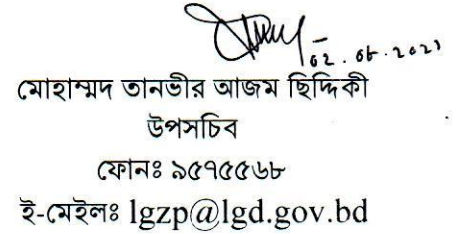 ০২.০৮.২০২১
মোহাম্মদ তানভীর আজম ছিদ্দিকী
উপসচিব
ফোনঃ ৯৫৭৫৫৬৮
ই-মেইলঃ lgzp@lgd.gov.bd